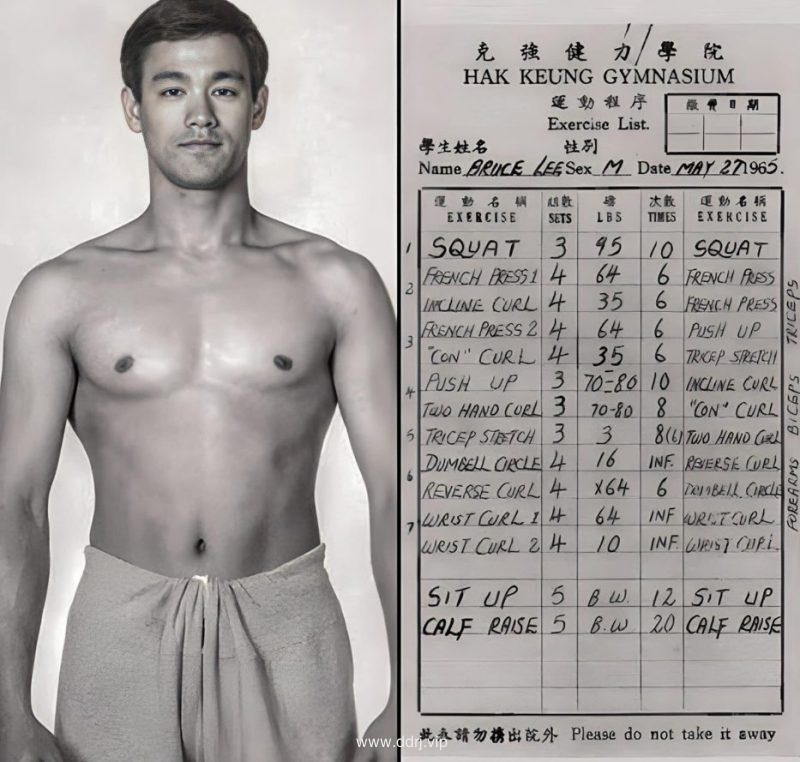 克強健力學院
HAK KEUNG GYMNASIUM
運動程序
繳費日期
Exercise List.
學生姓名 性別
Name BRUCE LEE Sex M Date MAY 27 1965.
運動名稱 組數 磅 次數 運動名稱
EXERCISE SETS LBS TIMES EXERCISE
1 SQUAT 3 95 10 SQUAT
2 FRENCH PRESS 1 4 64 6 FRENCH PRESS
INCLINE CURL 4 35 6 FRENCH PRESS
3 FRENCH PRESS 2 4 64 6 PUSH UP
"CON" CURL 4 35 6 TRICEP STRETCH
4 PUSH UP 3 70-80 10 INCLINE CURL
TWO HAND CURL 3 70-80 8 "CON" CURL
5 TRICEP STRETCH 3 3 8(6) TWO HAND CURL
6 DUMBELL CIRCLE 4 16 INF. REVERSE CURL
REVERSE CURL 4 x64 6 DUMBELL CIRCLE
7 WRIST CURL 1 4 64 INF WRIST CURL
WRIST CURL 2 4 10 INF. WRIST CURL
SIT UP 5 B.W. 12 SIT UP
CALF RAISE 5 B.W 20 CALF RAISE
TRICEPS
BICEPS
FOREARMS
此表請勿攜出院外 Please do not take it away
www.ddrj.vip